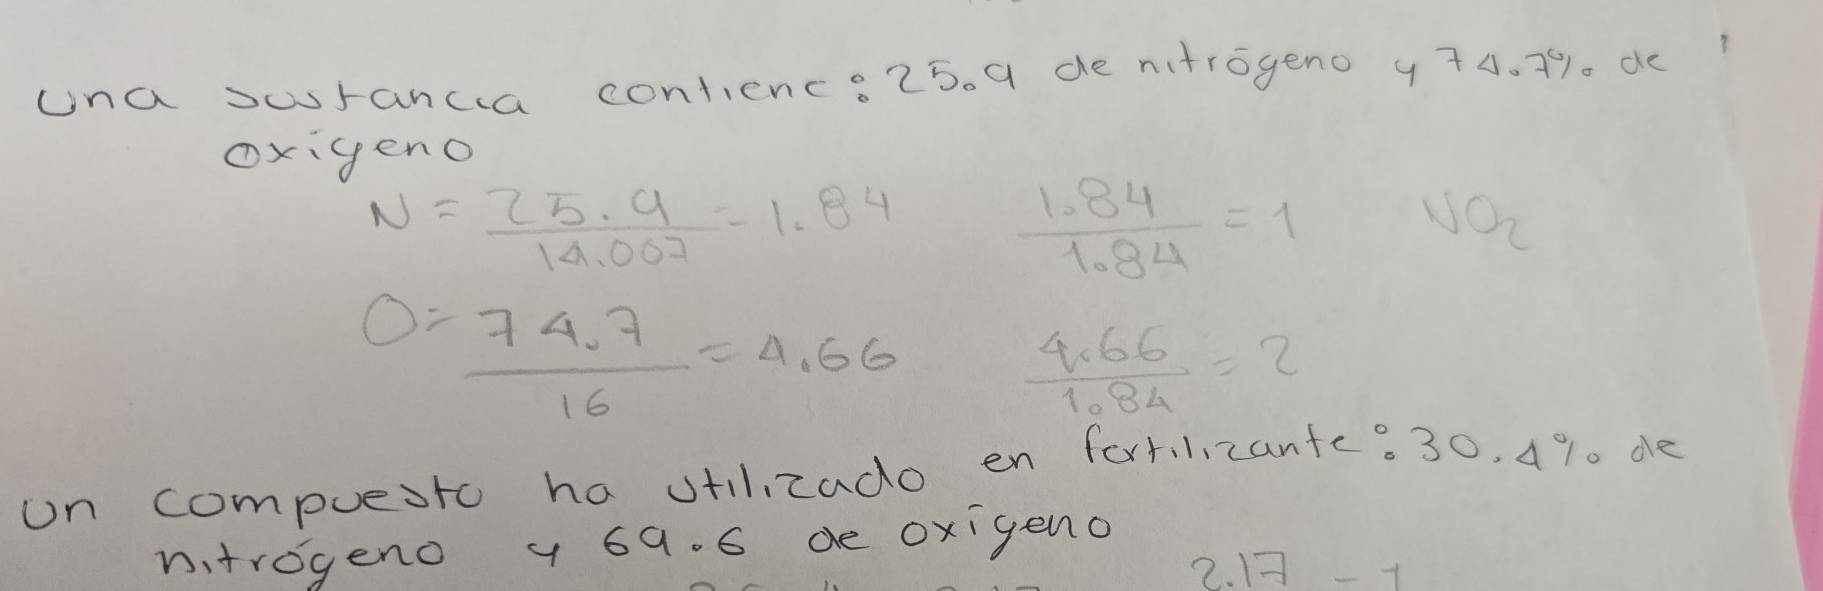 una sustancia contiene: 25.9 de nitrógeno y 74.7% de
oxígeno
N = 25.9 / 14.007 = 1.84   1.84 / 1.84 = 1   NO2
O = 74.7 / 16 = 4.66   4.66 / 1.84 = 2
un compuesto ha utilizado en fertilizante: 30.4% de
nitrógeno y 69.6 de oxígeno
2.17 = 1